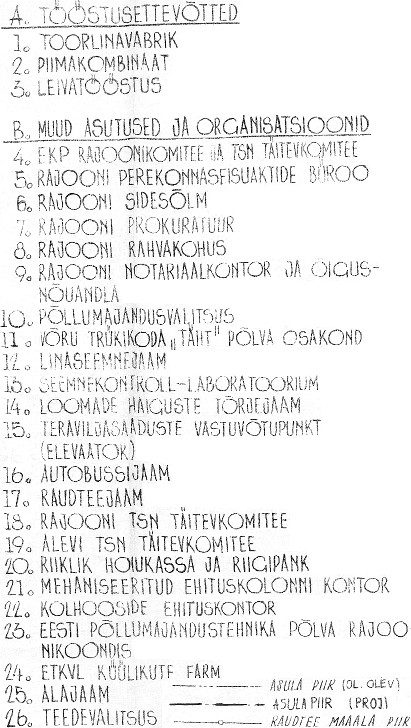 A. TÖÖSTUSETTEVÕTTED
1. TOORLINAVABRIK
2. PIIMAKOMBINAAT
3. LEIVATÖÖSTUS
B. MUUD ASUTUSED JA ORGANISATSIOONID
4. EKP RAJOONIKOMITEE JA TSN TÄITEVKOMITEE
5. RAJOONI PEREKONNASEISUAKTIDE BÜROO
6. RAJOONI SIDESÕLM
7. RAJOONI PROKURATUUR
8. RAJOONI RAHVAKOHUS
9. RAJOONI NOTARIAALKONTOR JA ÕIGUS-
NÕUANDLA
10. PÕLLUMAJANDUSVALITSUS
11. VÕRU TRÜKIKODA „TÄHT" PÕLVA OSAKOND
12. LINASEEMNEJAAM
13. SEEMNEKONTROLL-LABORATOORIUM
14. LOOMADE HAIGUSTE TÕRJEJAAM
15. TERAVILJASAADUSTE VASTUVÕTUPUNKT
(ELEVAATOR)
16. AUTOBUSSIJAAM
17. RAUDTEEJAAM
18. RAJOONI TSN TÄITEVKOMITEE
19. ALEVI TSN TÄITEVKOMITEE
20. RIIKLIK HOIUKASSA JA RIIGIPANK
21. MEHANISEERITUD EHITUSKOLONNI KONTOR
22. KOLHOOSIDE EHITUSKONTOR
23. EESTI PÕLLUMAJANDUSTEHNIKA PÕLVA RAJOO
NIKOONDIS
24. ETKVL KÜÜLIKUTE FARM
25. ALAJAAM
26. TEEDEVALITSUS
ASULA PIIR (OL. OLEV)
ASULA PIIR (PROJ)
RAUDTEE MAAALA PIIR